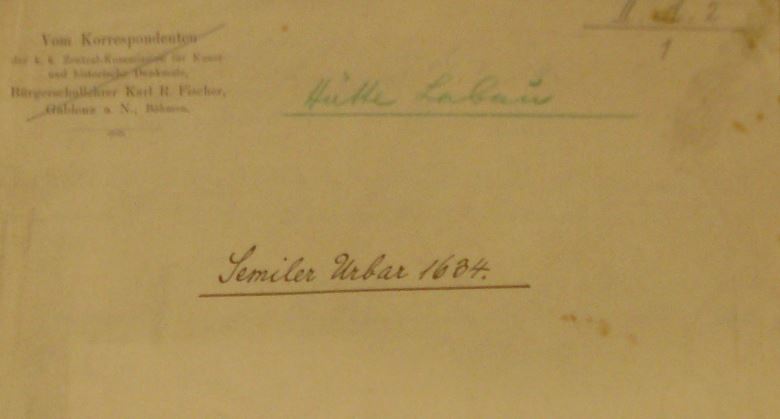 Vom Korrespondenten
der k. k. Zentral-Kommission für Kunst-
und historische Denkmale,
Bürgerschullehrer Karl R. Fischer,
Gablonz a. N., Böhmen.
2
1
Hütte Labau
Semiler Urbar 1634.